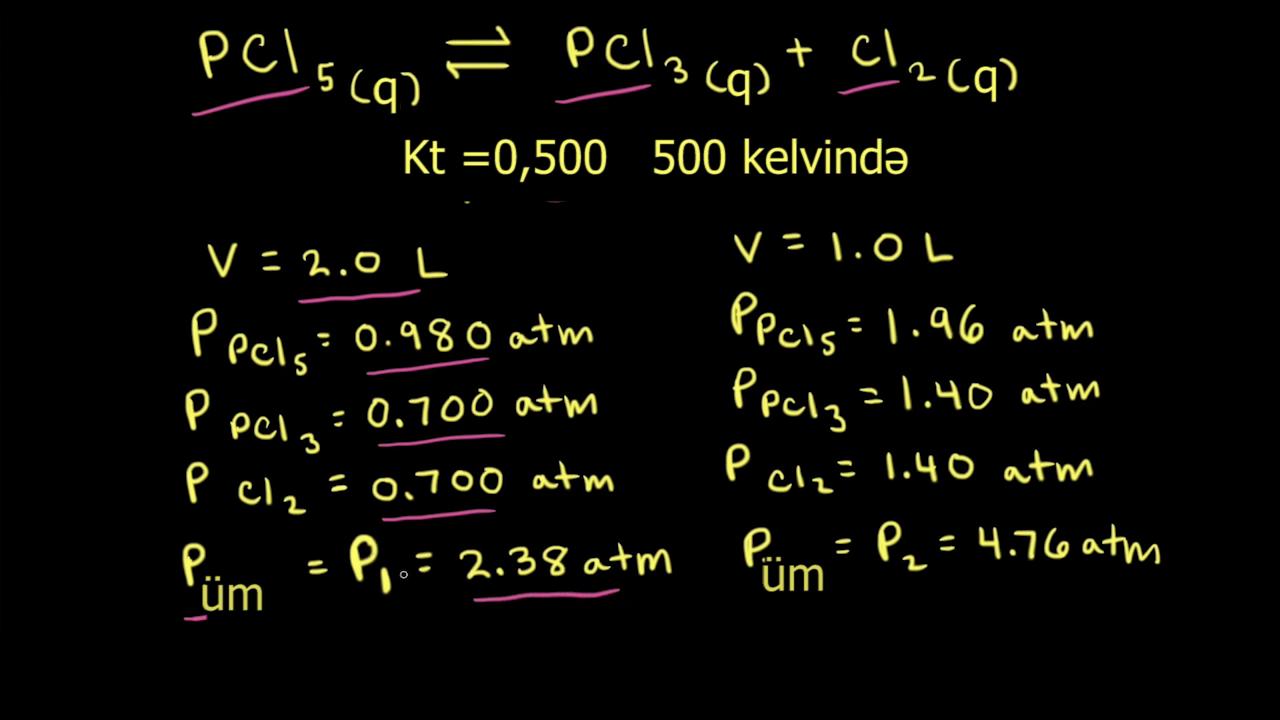 PCl₅(q) ⇌ PCl₃(q) + Cl₂(q)
Kt =0,500 500 kelvində
V = 2.0 L
P PCl₅ = 0.980 atm
P PCl₃ = 0.700 atm
P Cl₂ = 0.700 atm
P üm = P₁ = 2.38 atm
V = 1.0 L
P PCl₅ = 1.96 atm
P PCl₃ = 1.40 atm
P Cl₂ = 1.40 atm
P üm = P₂ = 4.76 atm